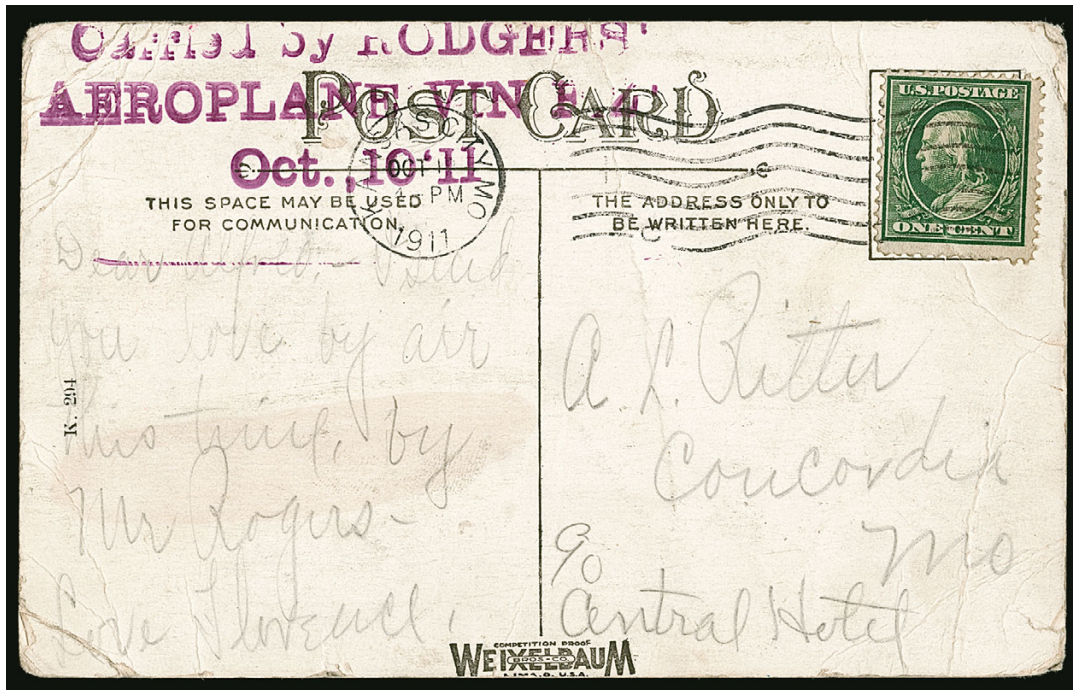 Carried by RODGERS'
AEROPLANE VIN FIZ
Oct., 10-11
POST CARD
KANSAS CITY MO
OCT 11
4 PM
1911
U.S. POSTAGE
ONE CENT
THIS SPACE MAY BE USED
FOR COMMUNICATION.
THE ADDRESS ONLY TO
BE WRITTEN HERE.
Dear I send
you love by air
this time, by
Mr Rogers -
Love Florence.
K. 294
A. L. Ritter
Concordia
Mo
c/o
Central Hotel
COMPETITION PROOF
WEIXELBAUM
BROS. CO.
LIMA, O. U.S.A.